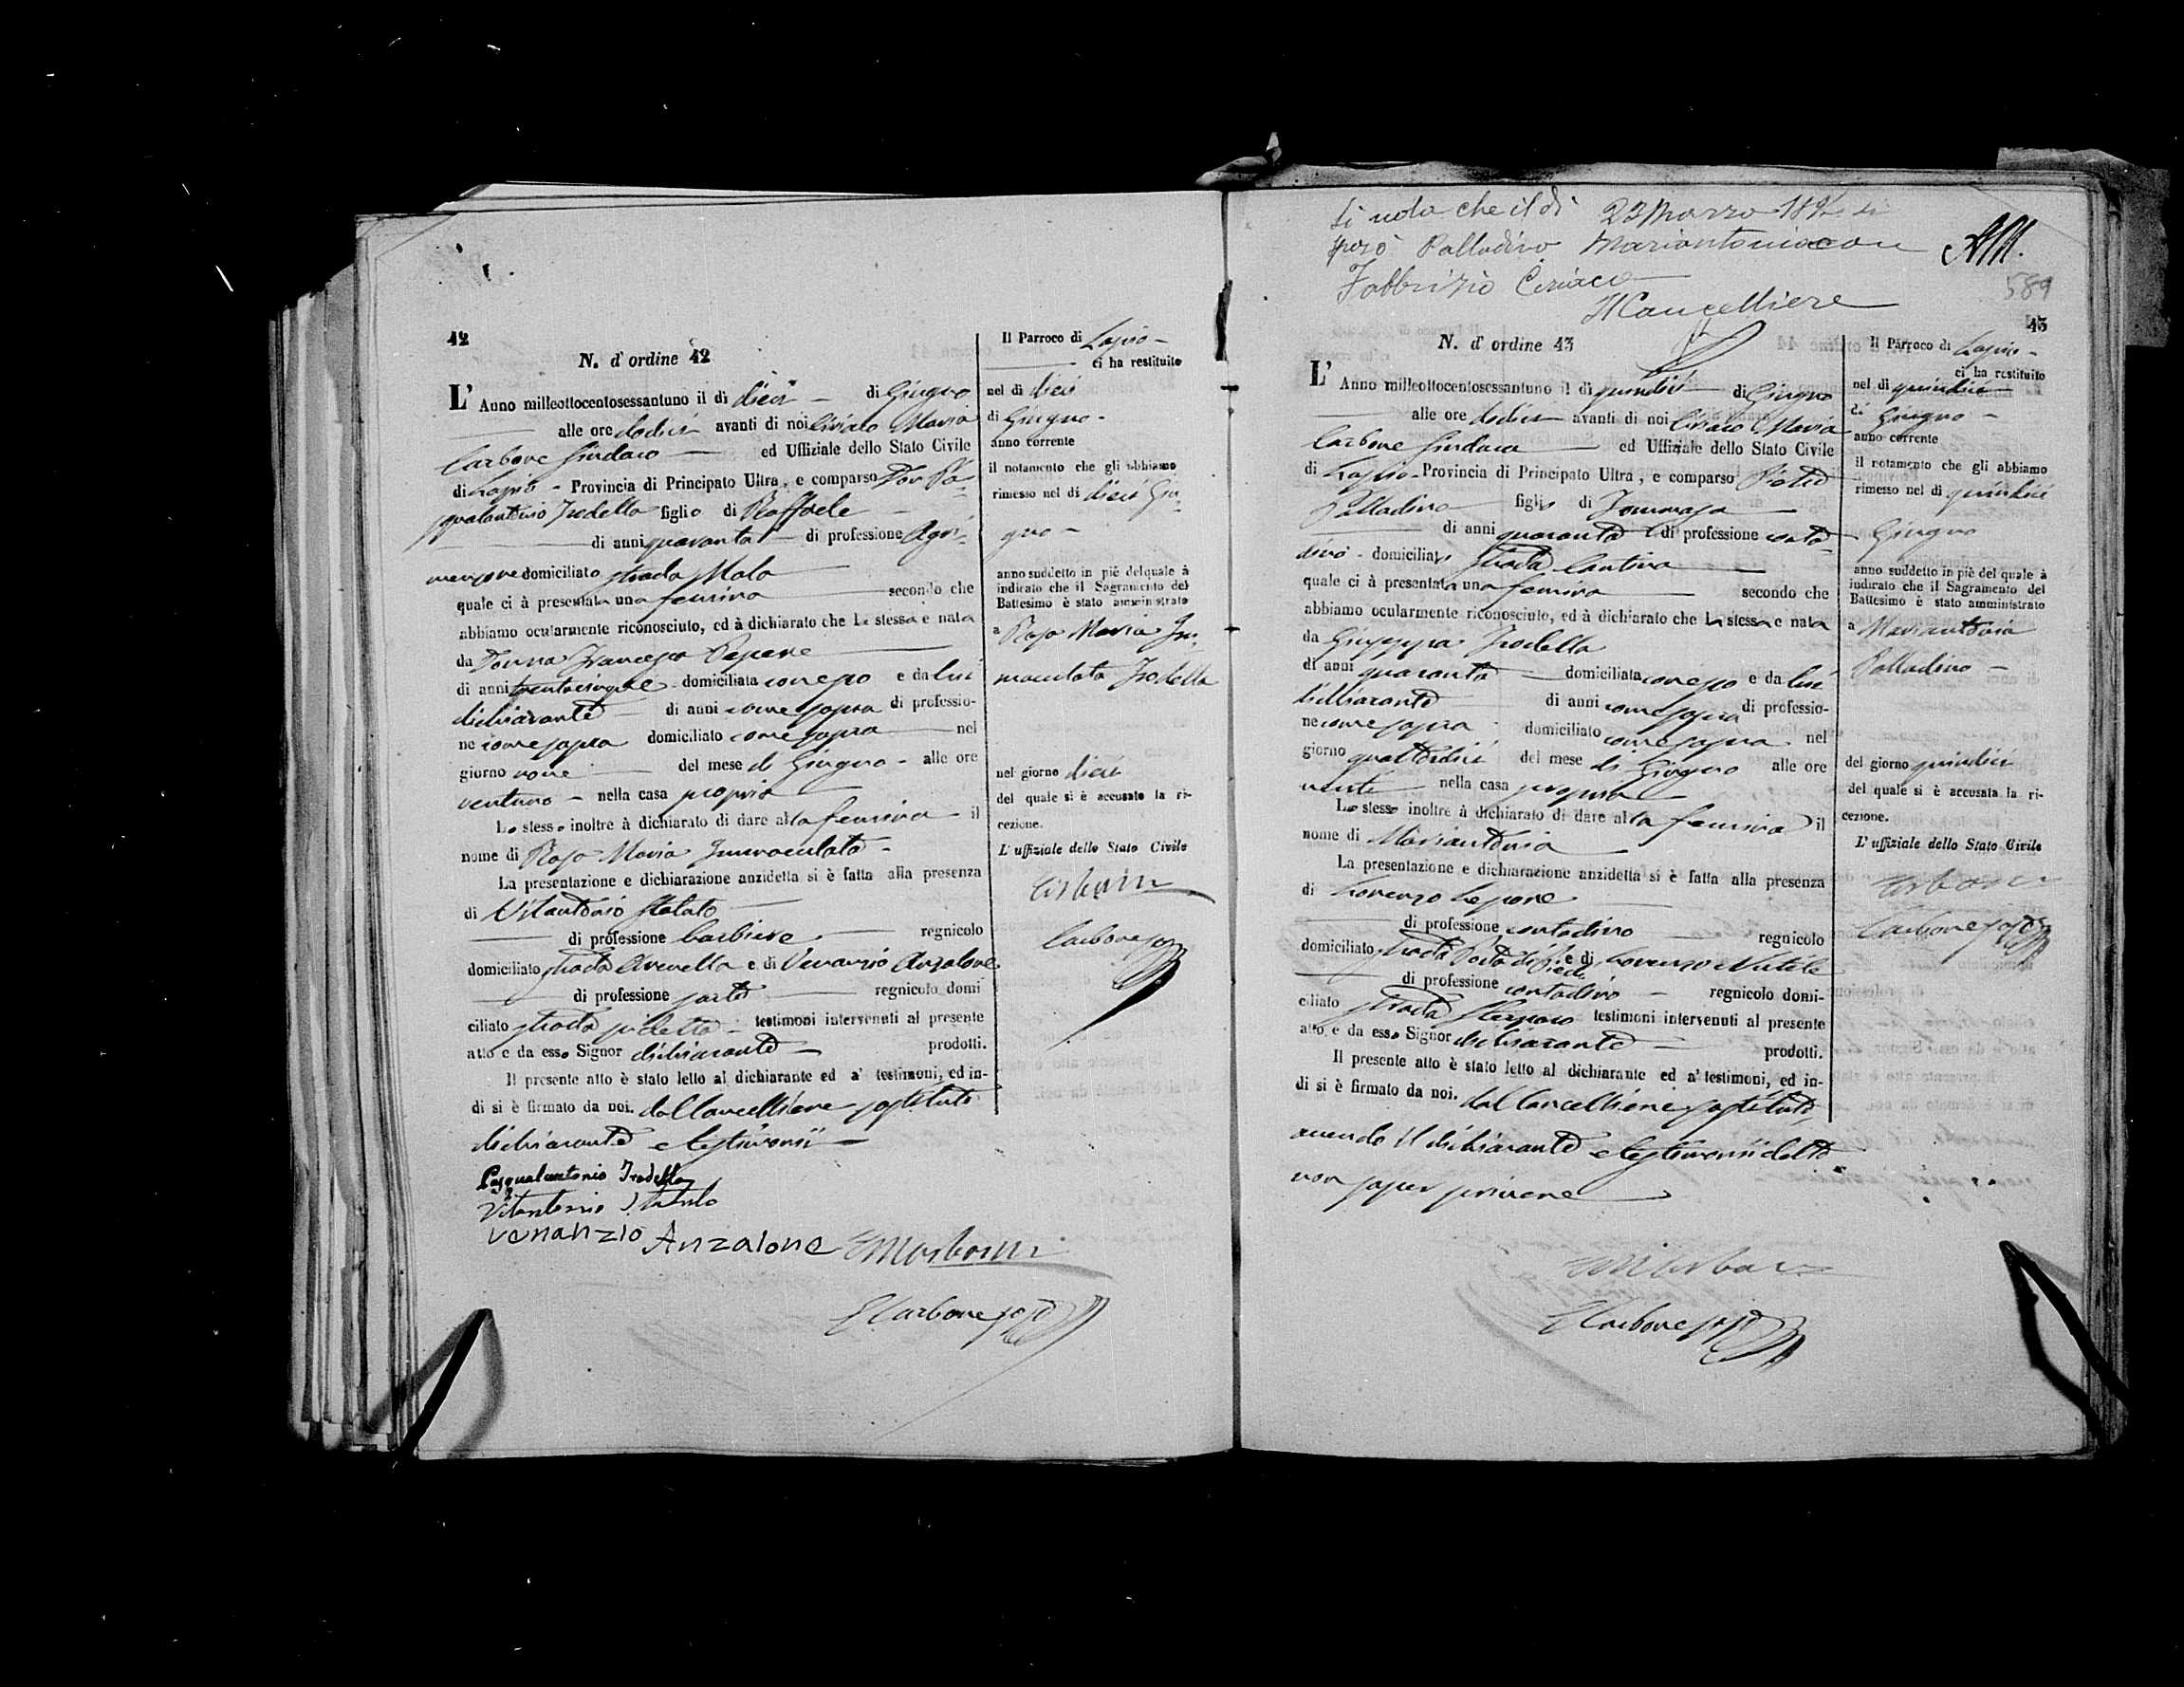 12
N. d' ordine 12
L' Anno milleottocentosessantuno il di dieci di Giugno
alle ore dodici avanti di noi Ciriaco Maria
Carbone Sindaco ed Uffiziale dello Stato Civile
di Lapio - Provincia di Principato Ultra, e comparso Don Pa-
squalantonio Trodella figlio di Raffaele
di anni quaranta di professione Agri-
mensore domiciliato strada Mala
quale ci à presentata una femina secondo che
abbiamo ocularmente riconosciuto, ed à dichiarato che la stessa e nata
da Donna Francesca Pepere
di anni trentacinque domiciliata con esso e da lui
dichiarante di anni come sopra di professio-
ne come sopra domiciliato come sopra nel
giorno nove del mese di Giugno - alle ore
ventuno - nella casa propria
Lo stesso inoltre à dichiarato di dare alla femina il
nome di Rosa Maria Immacolata -
La presentazione e dichiarazione anzidetta si è fatta alla presenza
di Vitantonio
di professione barbiere regnicolo
domiciliato strada e di Venanzio Anzalone
di professione sarto regnicolo domi
ciliato strada testimoni intervenuti al presente
atto e da esso Signor dichiarante prodotti.
Il presente atto è stato letto al dichiarante ed a' testimoni, ed in-
di si è firmato da noi. dal Cancelliere sostituto
dichiarante e testimonii
Pasqualantonio Trodella
Vitantonio
venanzio Anzalone
Carbone
Il Parroco di Lapio -
ci ha restituito
nel di dieci
di Giugno -
anno corrente
il notamento che gli abbiamo
rimesso nel di dieci Giu-
gno -
anno suddetto in piè del quale à
indicato che il Sagramento del
Battesimo è stato amministrato
a Rosa Maria Im-
macolata Trodella
nel giorno dieci
del quale si è accusato la ri-
cezione.
L' uffiziale dello Stato Civile
Carbone
Si nota che il dì 23 Marzo
sposò Palladino Mariantonia con
Fabbrizio Ciriaco
Il Cancelliere
589
43
N. d' ordine 43
L' Anno milleottocentosessantuno il di quindici di Giugno
alle ore dodici avanti di noi Ciriaco Maria
Carbone Sindaco ed Uffiziale dello Stato Civile
di Lapio - Provincia di Principato Ultra, e comparso
Palladino figlio di Tommaso
di anni quaranta di professione conta-
dino - domiciliato strada Cantina
quale ci à presentata una femina secondo che
abbiamo ocularmente riconosciuto, ed à dichiarato che la stessa e nata
da Giuseppa Trodella
di anni quaranta domiciliata con esso e da lui
dichiarante di anni come sopra di professio-
ne come sopra domiciliato come sopra nel
giorno quattordici del mese di Giugno alle ore
venti nella casa propria
Lo stesso inoltre à dichiarato di dare alla femina il
nome di Mariantonia
La presentazione e dichiarazione anzidetta si è fatta alla presenza
di Lorenzo Lepore
di professione contadino regnicolo
domiciliato strada e di Lorenzo
di professione contadino regnicolo domi-
ciliato strada testimoni intervenuti al presente
atto, e da esso Signor dichiarante prodotti.
Il presente atto è stato letto al dichiarante ed a' testimoni, ed in-
di si è firmato da noi. dal Cancelliere sostituto,
avendo il dichiarante e testimonii detto
non saper scrivere
Carbone
Il Parroco di Lapio -
ci ha restituito
nel di quindici
di Giugno -
anno corrente
il notamento che gli abbiamo
rimesso nel di quindici
Giugno
anno suddetto in piè del quale à
indicato che il Sagramento del
Battesimo è stato amministrato
a Mariantonia
Palladino -
del giorno quindici
del quale si è accusata la ri-
cezione.
L' uffiziale dello Stato Civile
Carbone